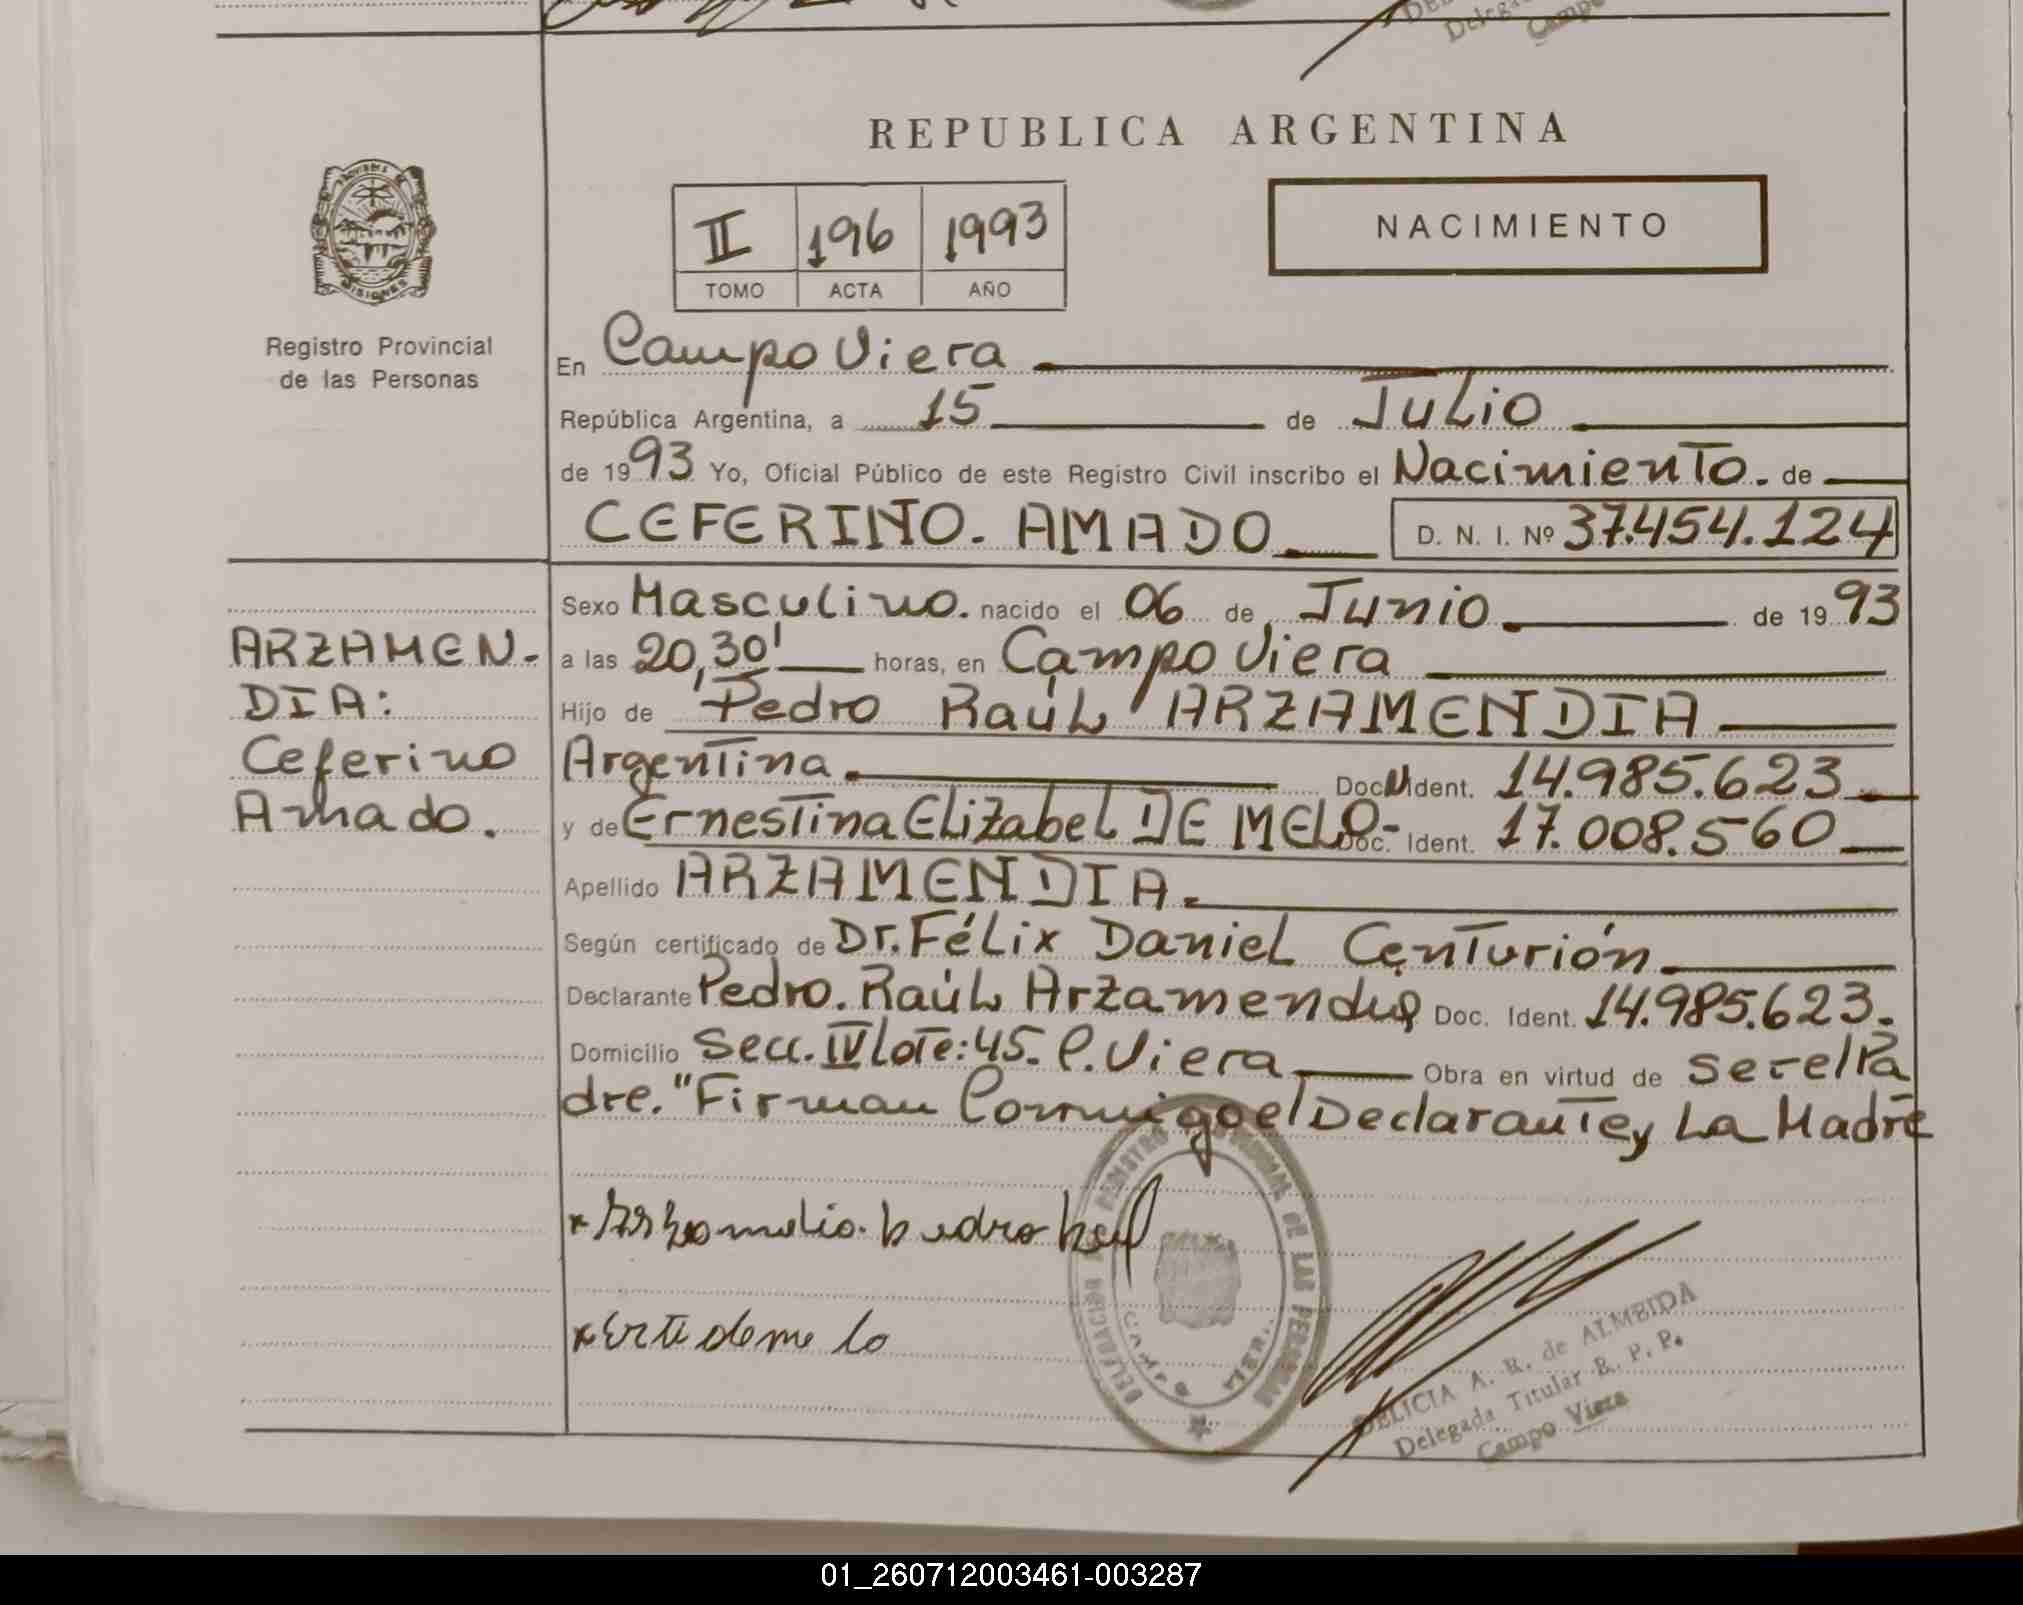 DELEG
Delega
Campo
REPUBLICA ARGENTINA
II 196 1993
TOMO ACTA AÑO
NACIMIENTO
PROVINCIA
MISIONES
Registro Provincial
de las Personas
En Campo Viera
República Argentina, a 15 de Julio
de 1993 Yo, Oficial Público de este Registro Civil inscribo el Nacimiento. de
CEFERINO. AMADO D. N. I. Nº 37.454.124
Sexo Masculino. nacido el 06 de Junio de 1993
ARZAMEN-
DIA:
Ceferino
Amado.
a las 20,30' horas, en Campo Viera
Hijo de Pedro Raúl ARZAMENDIA
Argentina. Doc. Ident. 14.985.623
y de Ernestina Elizabel DE MELO- Doc. Ident. 17.008.560
Apellido ARZAMENDIA.
Según certificado de Dr. Félix Daniel Centurión
Declarante Pedro. Raúl Arzamendia Doc. Ident. 14.985.623.
Domicilio Secc. IV Lote: 45. C. Viera Obra en virtud de ser el Pa
dre. "Firman Conmigo el Declarante y La Madre
DELEGACION REGISTRO PROVINCIAL DE LAS PERSONAS
CAMPO VIERA
DELICIA A. R. de ALMEIDA
Delegada Titular R. P. P.
Campo Viera
01_260712003461-003287